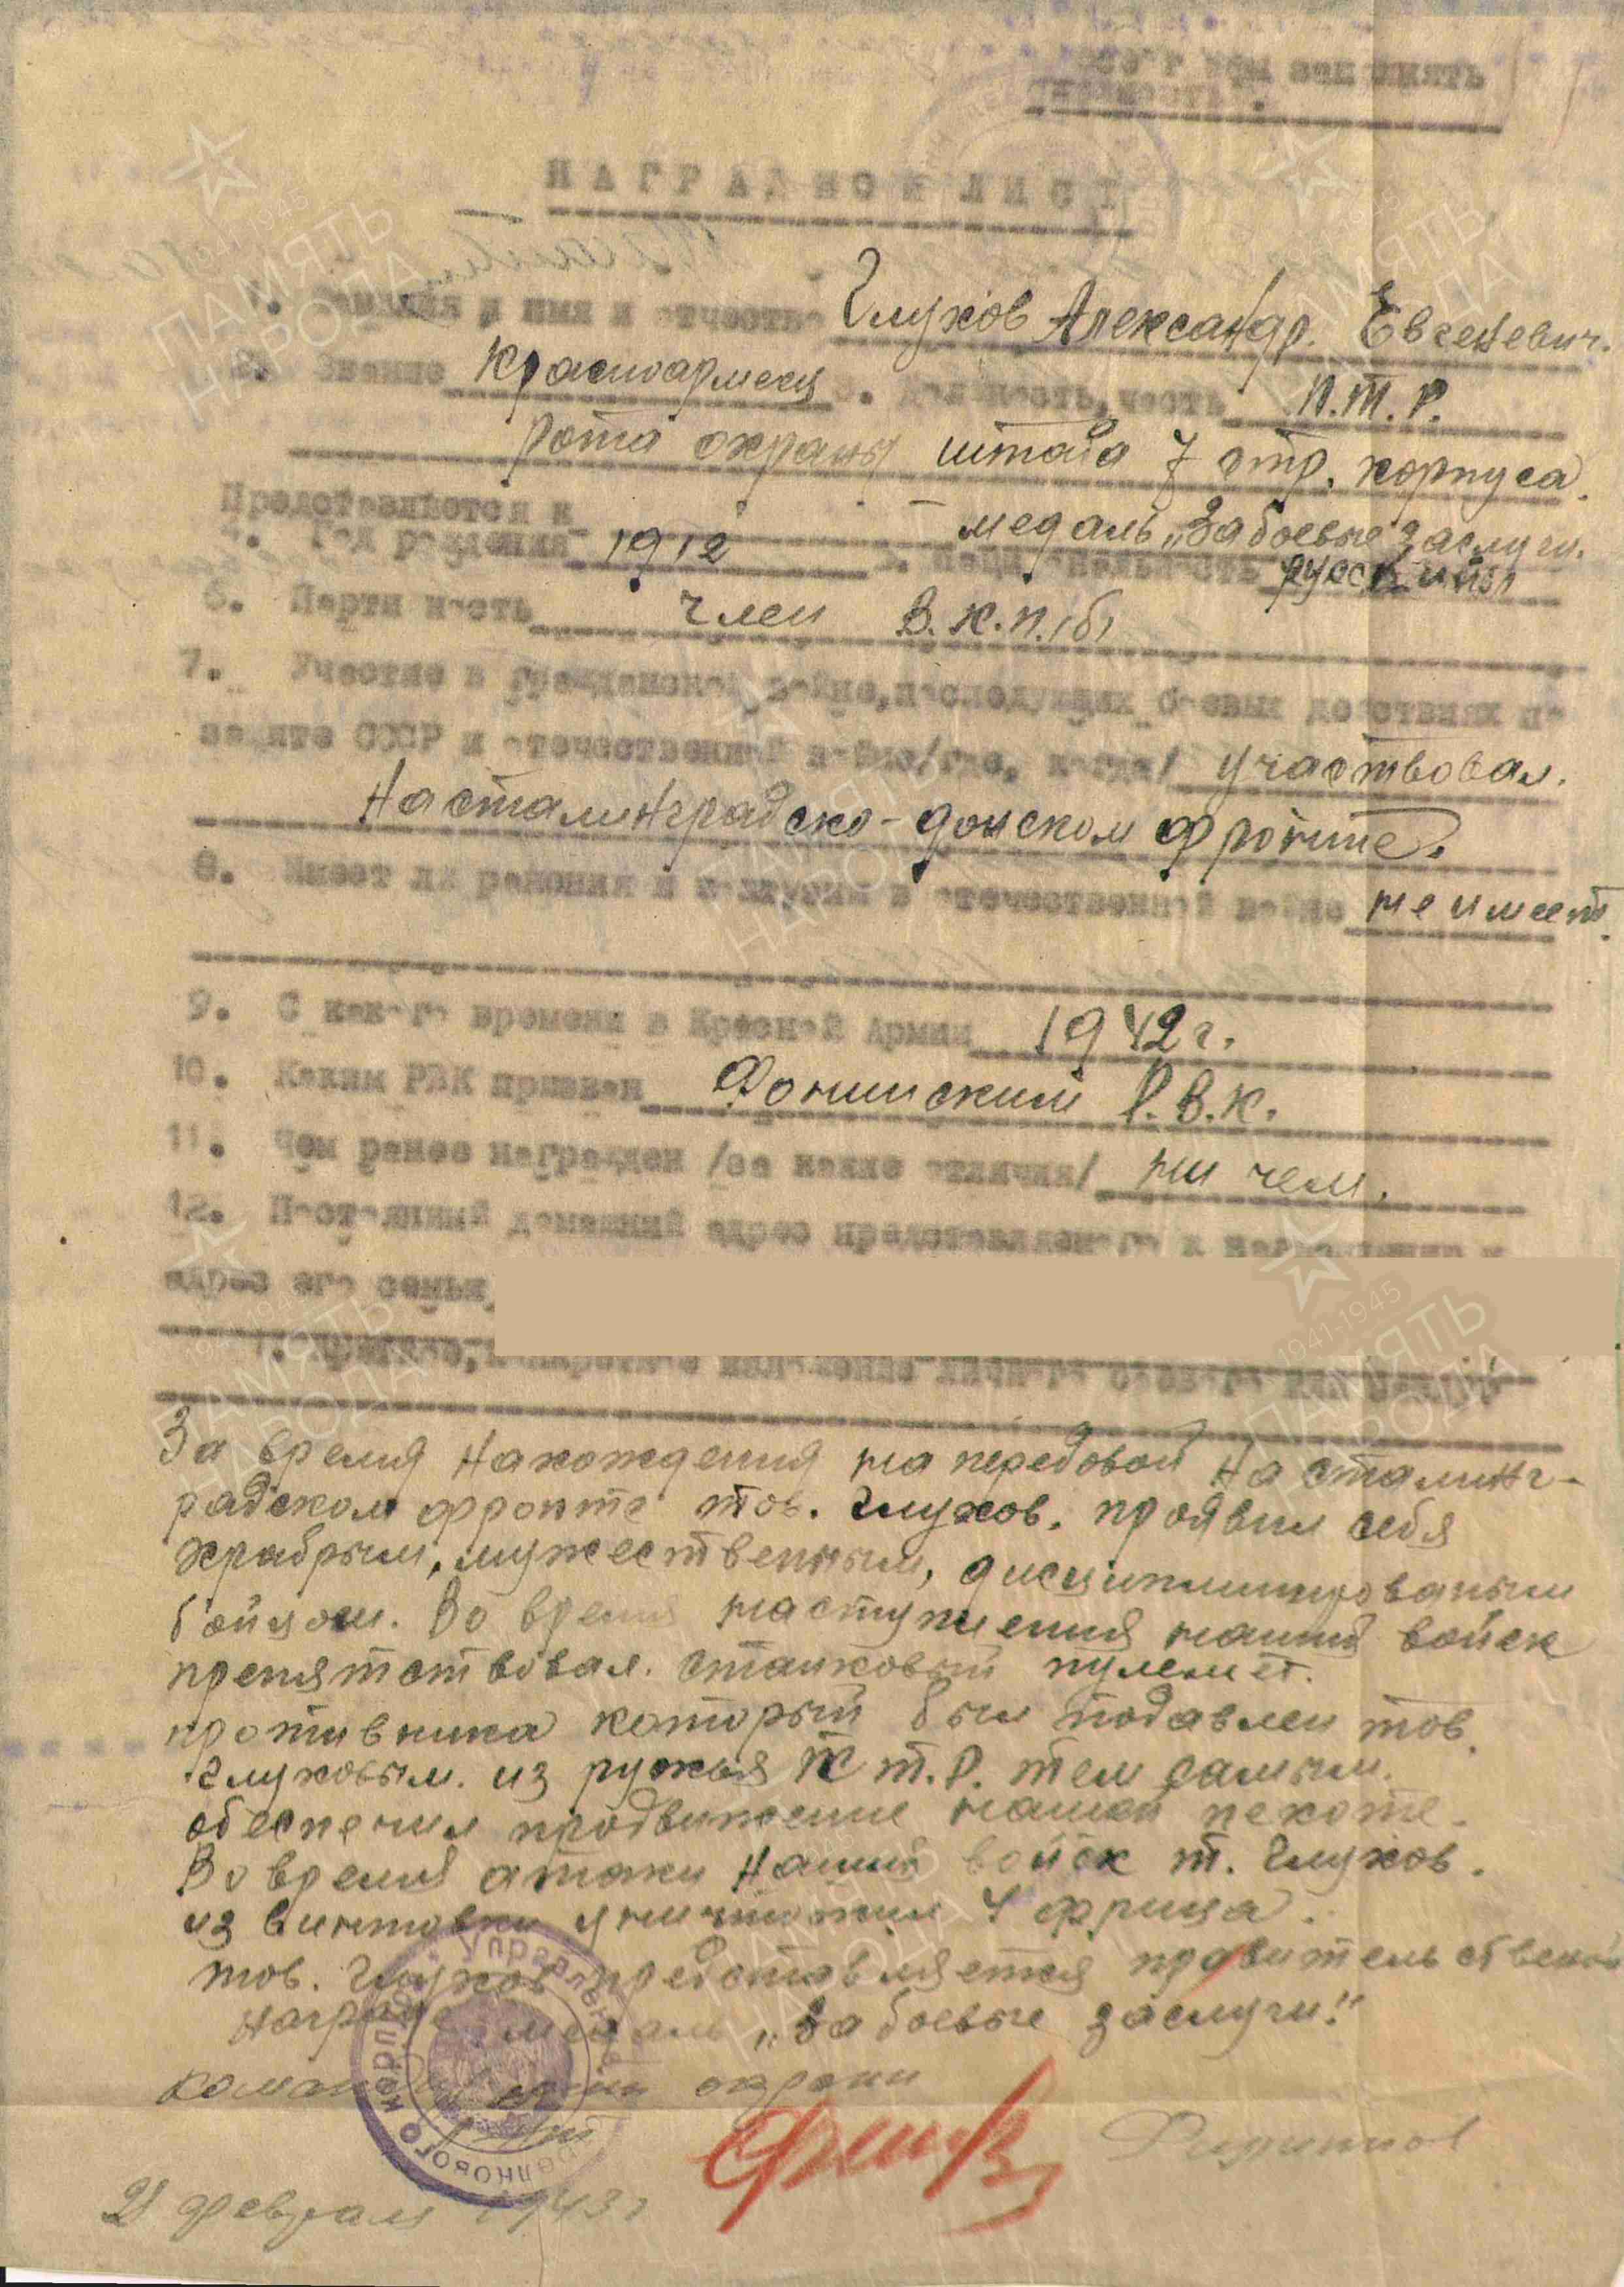 НАГРАДНОЙ ЛИСТ
1. Фамилия, имя и отчество Глухов Александр. Евгеневич.
2. Звание Красноармеец 3. Должность, часть П.Т.Р.
рота охраны штаба 7 стр. корпуса.
Представляется к медаль „За боевые заслуги.
4. Год рождения 1912 5. Национальность русский
6. Партийность член В.К.П.(б)
7. Участие в гражданской войне, последующих боевых действиях по
защите СССР и отечественной войне/где, когда/ участвовал.
На сталинградско-донском фронте.
8. Имеет ли ранения и контузии в отечественной войне не имеет.
9. С какого времени в Красной Армии 1942 г.
10. Каким РВК призван Фоминским Р.В.К.
11. Чем ранее награжден /за какие отличия/ ни чем.
12. Постоянный домашний адрес представляемого к награждению и
адрес его семьи
конкретное изложение личного боевого
За время нахождения на передовой на сталинг-
радском фронте тов. Глухов. проявил себя
храбрым, мужественным, дисциплинированым
бойцом. Во время наступления наших войск
препятствовал. станковый пулемет.
противника который был подавлен тов.
Глуховым. из ружья П.Т.Р. тем самым.
обеспечил продвижение нашей пехоте.
Во время атаки наших войск т. Глухов.
из винтовки уничтожил 4 фрица.
тов. Глухов представляется правительственой
награде медаль „За боевые заслуги!"
командир роты охраны
Филиппов
2 февраля 1943 г
Управление
стрелкового корпуса
ПАМЯТЬ НАРОДА
1941-1945